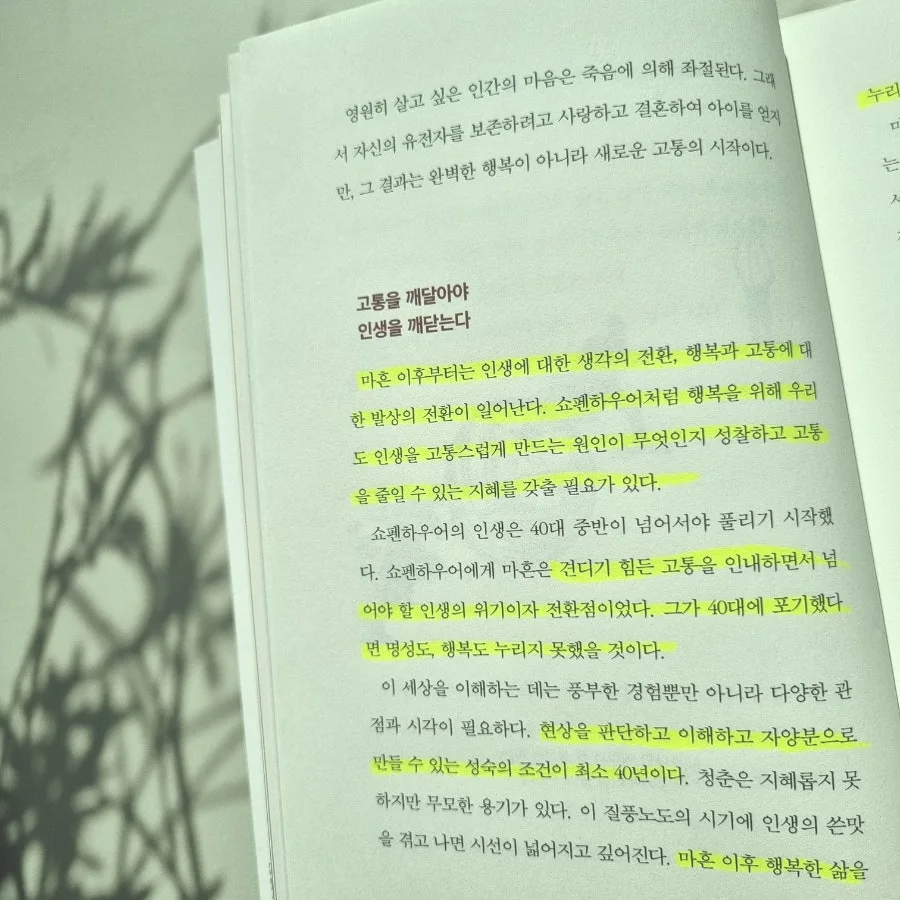 영원히 살고 싶은 인간의 마음은 죽음에 의해 좌절된다. 그래
서 자신의 유전자를 보존하려고 사랑하고 결혼하여 아이를 얻지
만, 그 결과는 완벽한 행복이 아니라 새로운 고통의 시작이다.
고통을 깨달아야
인생을 깨닫는다
마흔 이후부터는 인생에 대한 생각의 전환, 행복과 고통에 대
한 발상의 전환이 일어난다. 쇼펜하우어처럼 행복을 위해 우리
도 인생을 고통스럽게 만드는 원인이 무엇인지 성찰하고 고통
을 줄일 수 있는 지혜를 갖출 필요가 있다.
쇼펜하우어의 인생은 40대 중반이 넘어서야 풀리기 시작했
다. 쇼펜하우어에게 마흔은 견디기 힘든 고통을 인내하면서 넘
어야 할 인생의 위기이자 전환점이었다. 그가 40대에 포기했다
면 명성도, 행복도 누리지 못했을 것이다.
이 세상을 이해하는 데는 풍부한 경험뿐만 아니라 다양한 관
점과 시각이 필요하다. 현상을 판단하고 이해하고 자양분으로
만들 수 있는 성숙의 조건이 최소 40년이다. 청춘은 지혜롭지 못
하지만 무모한 용기가 있다. 이 질풍노도의 시기에 인생의 쓴맛
을 겪고 나면 시선이 넓어지고 깊어진다. 마흔 이후 행복한 삶을
누리
는